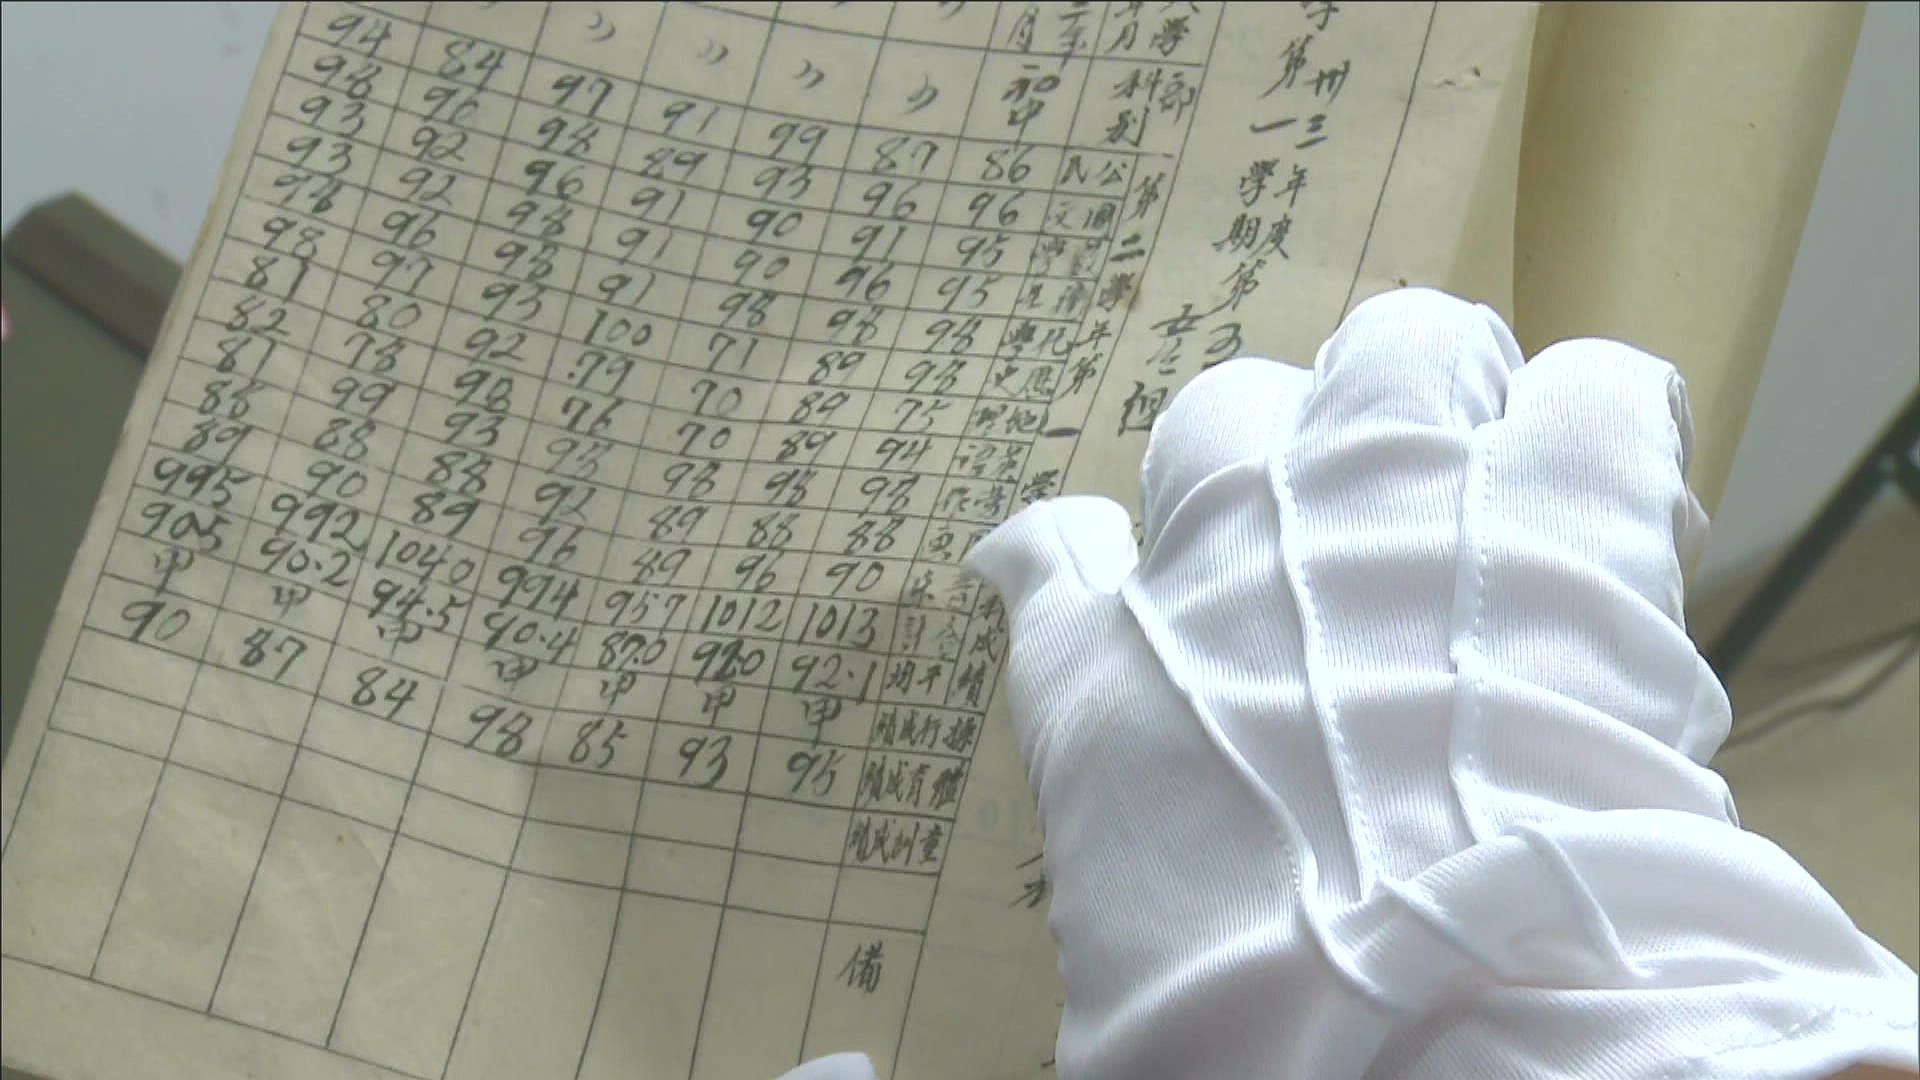 第卅三年度
第一學期第
科別
公民
國文
數學
理化
歷史
地理
英語
勞作
圖畫
音樂
合計
平均
操行成績
體育成績
童訓成績
備
第二學年第一學
成績
初中
86
96
95
95
98
98
75
94
98
88
90
1013
92.1
甲
95
〃
87
96
91
96
98
89
84
89
98
88
96
1012
92.0
甲
93
〃
99
93
90
90
98
71
70
70
98
89
89
957
87.0
甲
85
〃
91
89
91
91
91
100
79
76
98
92
96
994
90.4
甲
98
〃
97
98
96
98
98
93
92
98
93
88
89
1040
94.5
甲
84
84
96
92
92
96
97
80
78
99
88
90
992
90.2
甲
87
94
98
93
93
98
98
81
82
81
88
89
995
90.5
甲
90